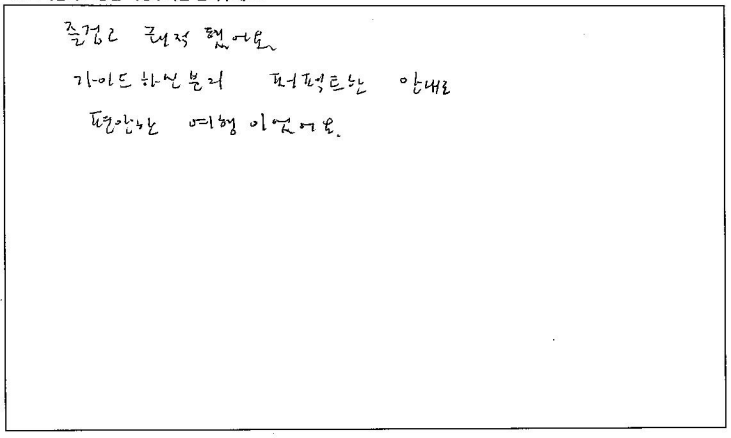 즐겁고 쾌적 했어요.
가이드 하신분의 퍼펙트한 안내로
편안한 여행 이었어요.